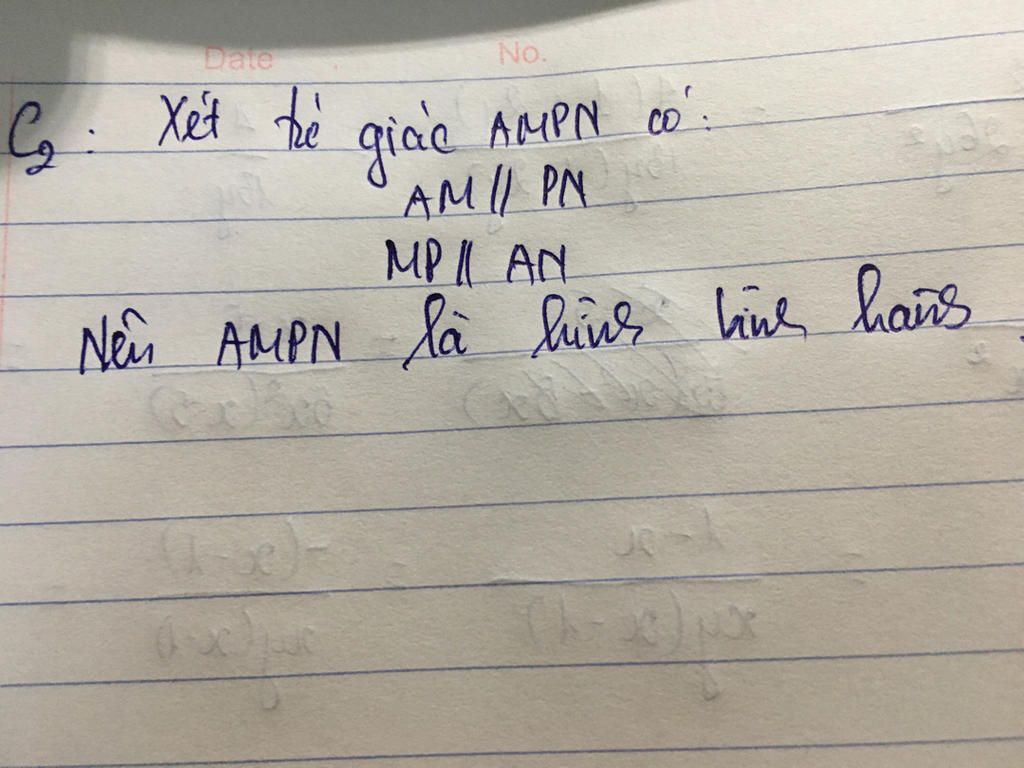 Date No.
C₂: Xét tứ giác AMPN có:
AM // PN
MP // AN
Nên AMPN là hình bình hành